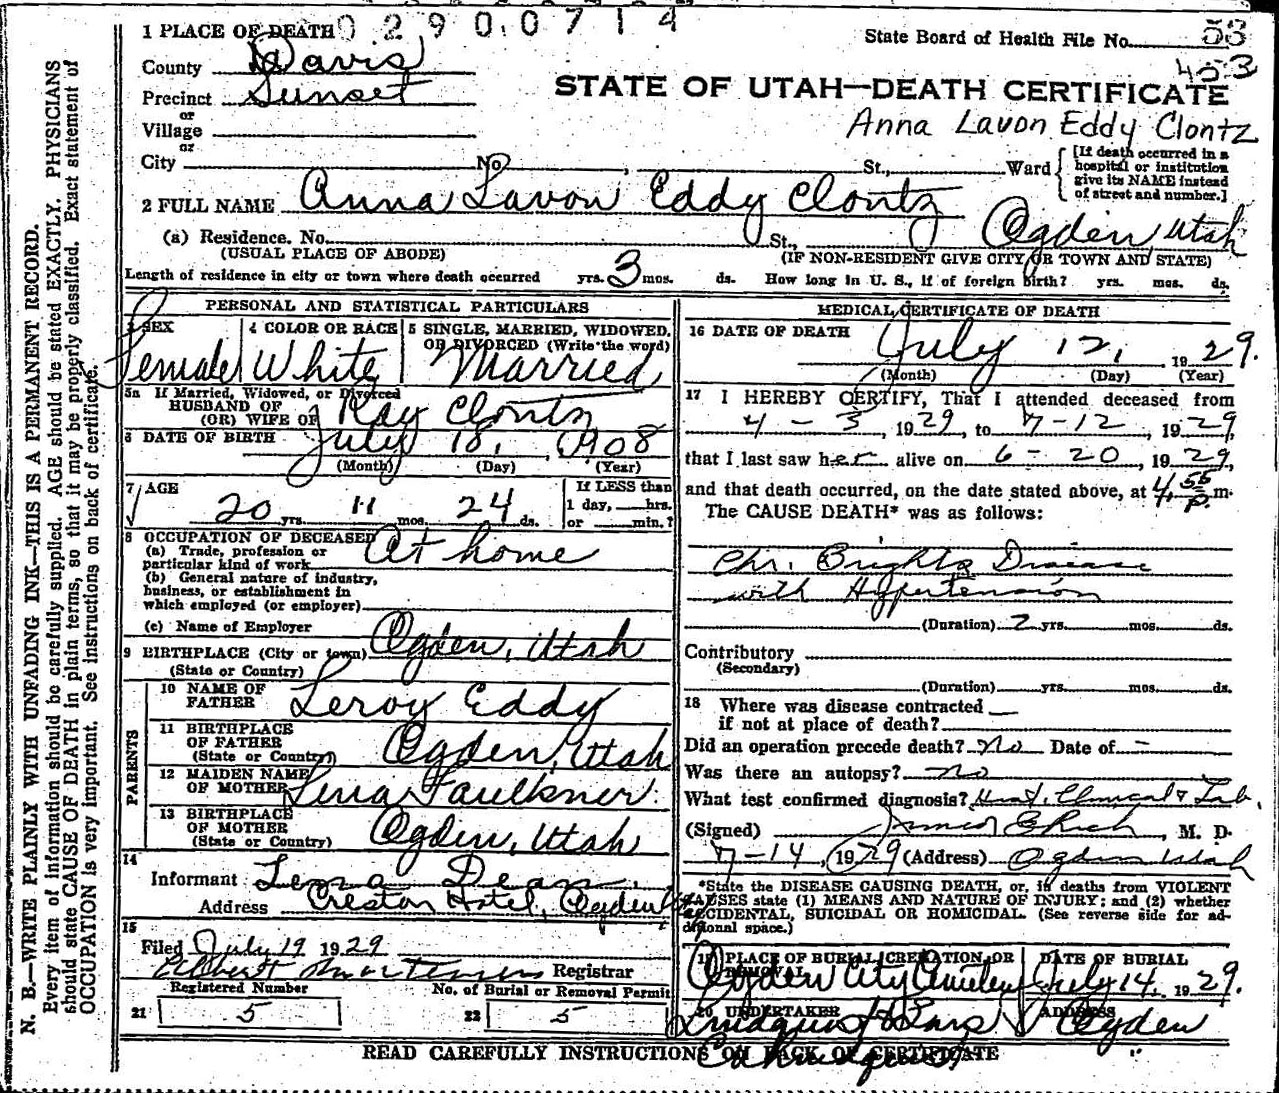 N. B.—WRITE PLAINLY WITH UNFADING INK—THIS IS A PERMANENT RECORD.
Every item of information should be carefully supplied. AGE should be stated EXACTLY. PHYSICIANS
should state CAUSE OF DEATH in plain terms, so that it may be properly classified. Exact statement of
OCCUPATION is very important. See instructions on back of certificate.
1 PLACE OF DEATH 0 2 9 0 0 7 1 4
State Board of Health File No. 53
453
County Davis
Precinct Sunset
STATE OF UTAH—DEATH CERTIFICATE
or
Village
Anna Lavon Eddy Clontz
or
City No. , St., Ward
[If death occurred in a
hospital or institution
give its NAME instead
of street and number.]
2 FULL NAME Anna Lavon Eddy Clontz
(a) Residence. No. St., Ogden, Utah
(USUAL PLACE OF ABODE) (IF NON-RESIDENT GIVE CITY OR TOWN AND STATE)
Length of residence in city or town where death occurred yrs. 3 mos. ds. How long in U. S., if of foreign birth? yrs. mos. ds.
PERSONAL AND STATISTICAL PARTICULARS
3 SEX 4 COLOR OR RACE 5 SINGLE, MARRIED, WIDOWED,
OR DIVORCED (Write the word)
Female White Married
5a If Married, Widowed, or Divorced
HUSBAND OF
(OR) WIFE OF Ray Clontz
6 DATE OF BIRTH July 18, 1908
(Month) (Day) (Year)
7 AGE If LESS than
20 yrs. 11 mos. 24 ds. 1 day, hrs.
or min.?
8 OCCUPATION OF DECEASED
(a) Trade, profession or
particular kind of work At home
(b) General nature of industry,
business, or establishment in
which employed (or employer)
(c) Name of Employer
9 BIRTHPLACE (City or town) Ogden, Utah
(State or Country)
PARENTS
10 NAME OF
FATHER Leroy Eddy
11 BIRTHPLACE
OF FATHER
(State or Country) Ogden, Utah
12 MAIDEN NAME
OF MOTHER Lena Faulkner
13 BIRTHPLACE
OF MOTHER
(State or Country) Ogden, Utah
14
Informant Lena Dean
Address Creston Hotel, Ogden
15
Filed July 19 1929
Albert Mortensen Registrar
Registered Number No. of Burial or Removal Permit
21 5 22 5
MEDICAL CERTIFICATE OF DEATH
16 DATE OF DEATH July 12, 1929.
(Month) (Day) (Year)
17 I HEREBY CERTIFY, That I attended deceased from
4 - 3, 1929, to 7-12, 1929,
that I last saw her alive on 6 - 20, 1929,
and that death occurred, on the date stated above, at 4.55 p. m.
The CAUSE DEATH* was as follows:
Chr. Brights Disease
with Hypertension
(Duration) 2 yrs. mos. ds.
Contributory
(Secondary)
(Duration) yrs. mos. ds.
18 Where was disease contracted —
if not at place of death?
Did an operation precede death? No Date of —
Was there an autopsy? no
What test confirmed diagnosis? Hist. Clinical & Lab.
(Signed) , M. D.
7-14, 1929 (Address) Ogden Utah
*State the DISEASE CAUSING DEATH, or, in deaths from VIOLENT
CAUSES state (1) MEANS AND NATURE OF INJURY; and (2) whether
ACCIDENTAL, SUICIDAL OR HOMICIDAL. (See reverse side for ad-
ditional space.)
19 PLACE OF BURIAL, CREMATION, OR
REMOVAL DATE OF BURIAL
Ogden City Cemetery July 14, 1929.
20 UNDERTAKER ADDRESS
Lindquist & Sons Ogden
READ CAREFULLY INSTRUCTIONS ON BACK OF CERTIFICATE